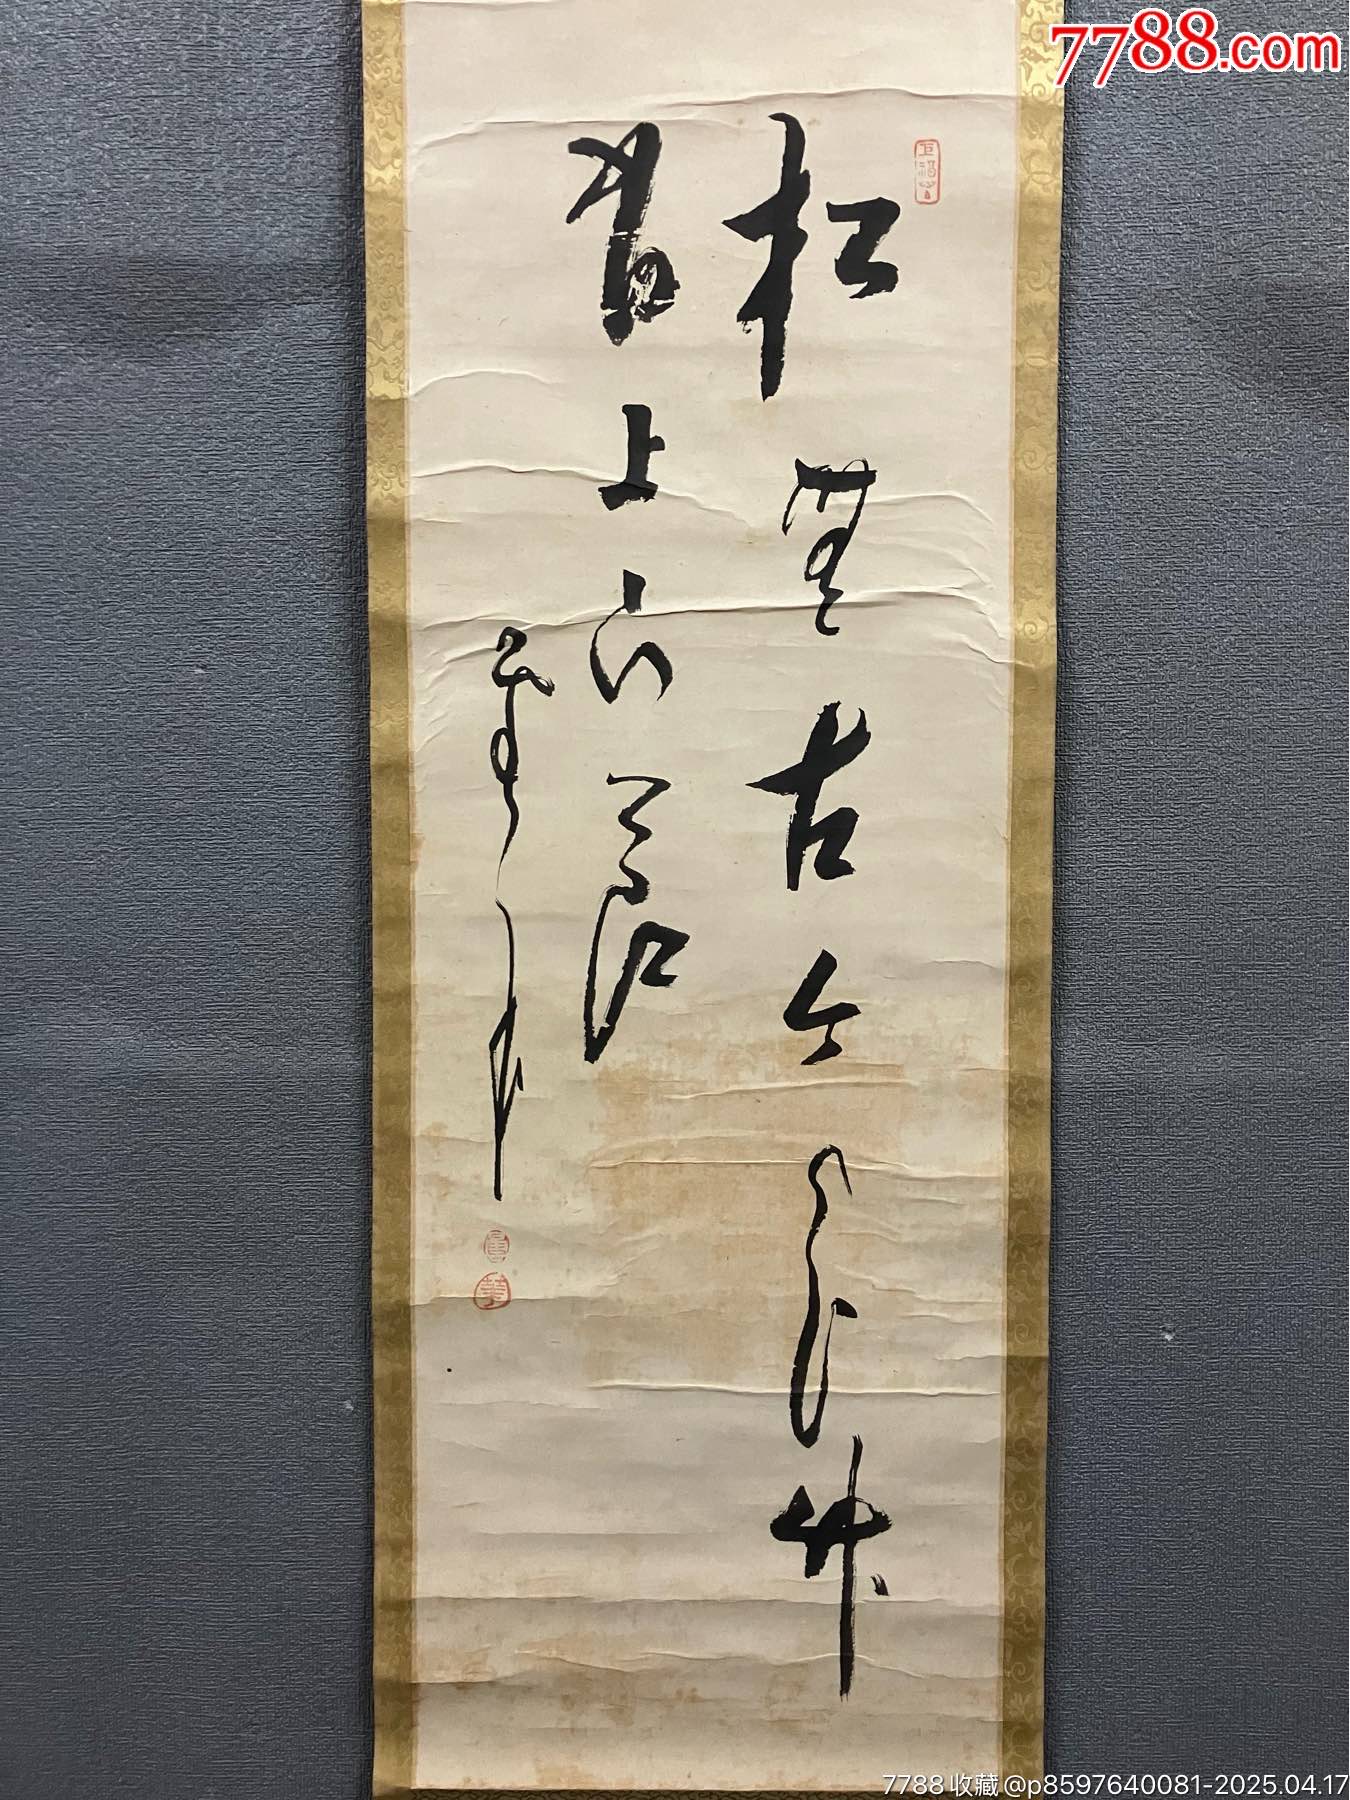 7788.com
松無古今色竹
有上下節
7788 收藏 @p8597640081-2025.04.17